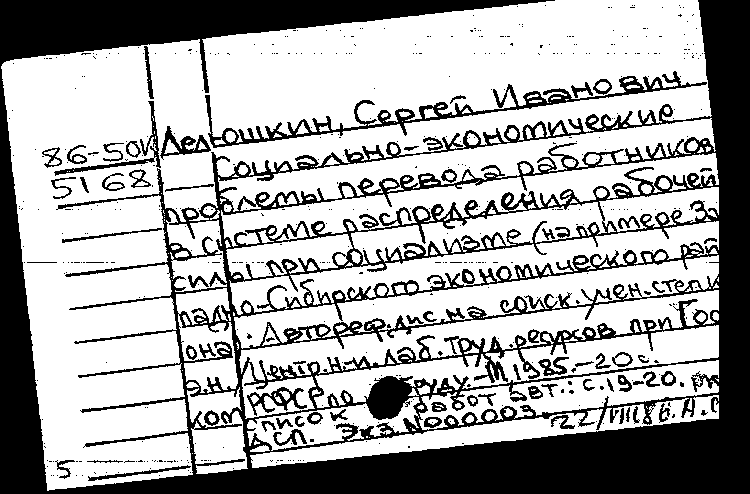 86-50к
5168
Делюшкин, Сергей Иванович.
Социально-экономические
проблемы перевода работников
в системе распределения рабочей
силы при социализме (на примере За
падно-Сибирского экономического рай
она): Автореф.дис.на соиск.учен.степ.к
э.н. / Центр.н-и. лаб. труд.ресурсов при Гос
ком РСФСР по труду.-М,1985.-20с.
Список работ авт.: с.19-20.
ДСП. Экз.N000003.
22/VIII86.
5